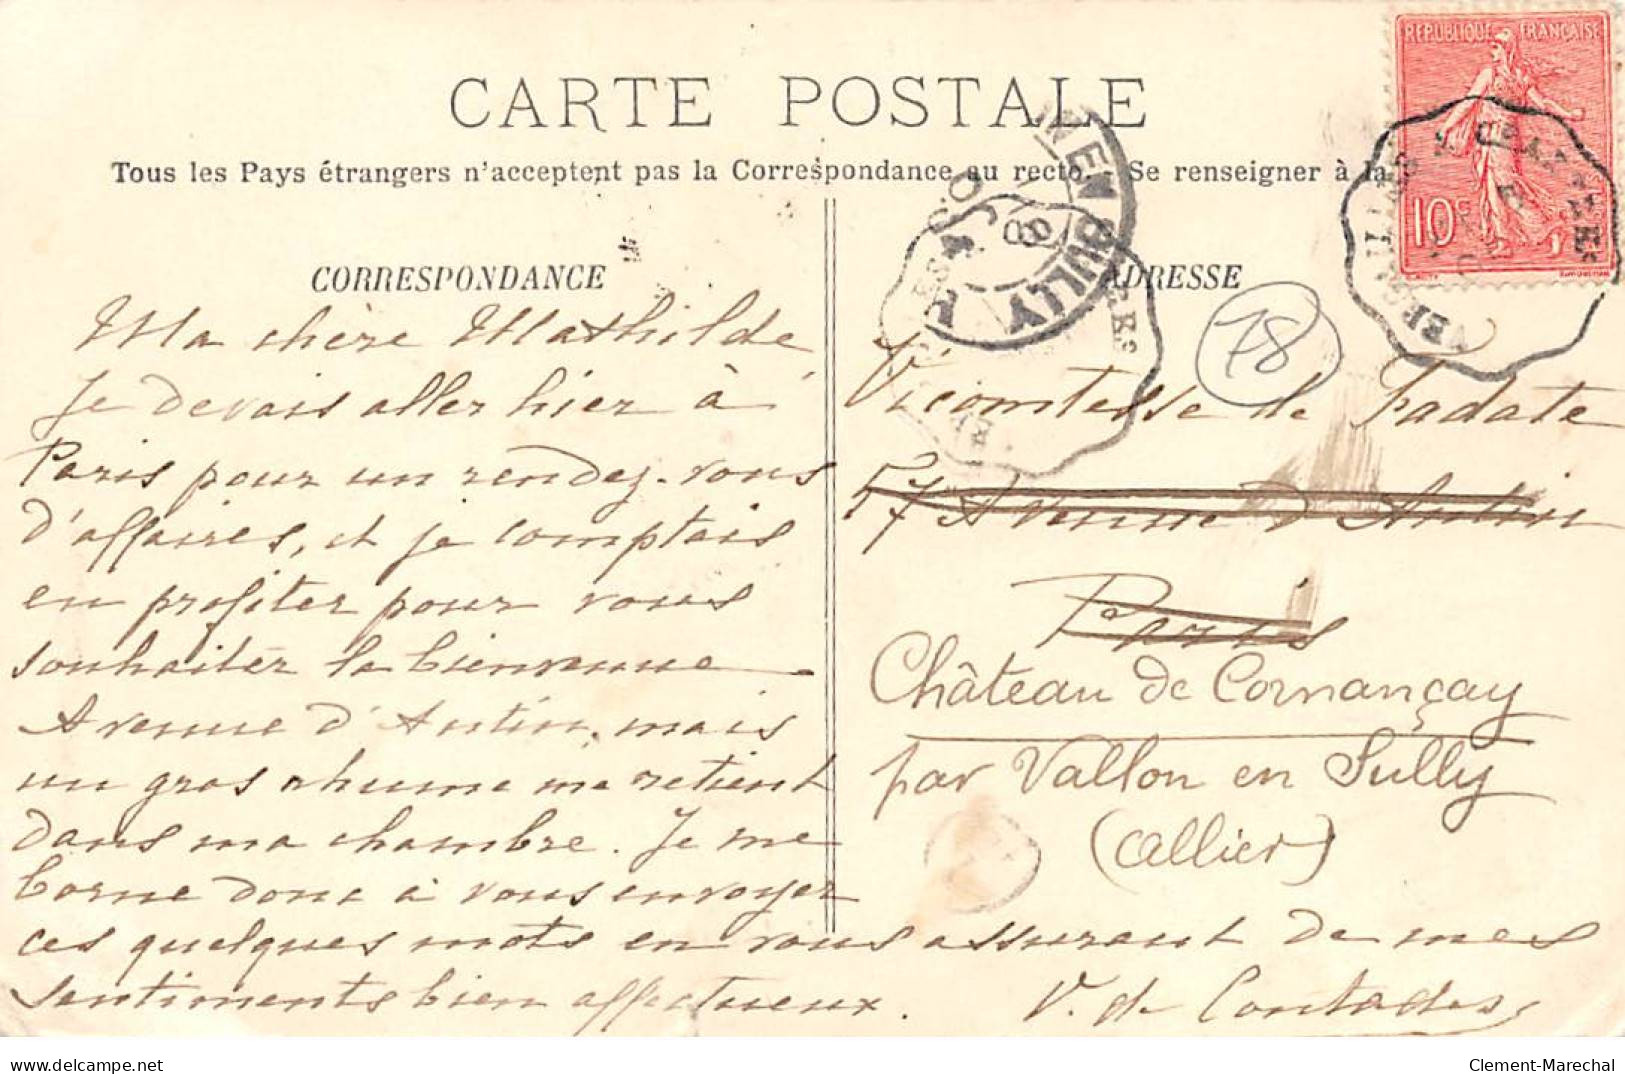 CARTE POSTALE
Tous les Pays étrangers n'acceptent pas la Correspondance au recto. Se renseigner à la
CORRESPONDANCE
Ma chère Mathilde
Je devais aller hier à
Paris pour un rendez-vous
d'affaires, et je comptais
en profiter pour vous
souhaiter la bienvenue
Avenue d'Antin, mais
un gros rhume me retient
dans ma chambre. Je me
borne donc à vous envoyer
ces quelques mots en vous assurant de mes
sentiments bien affectueux.
V. de Contades
ADRESSE
78
Vicomtesse de Tadate
57 Avenue d'Antin
Paris
Château de Cornançay
par Vallon en Sully
(Allier)
REPUBLIQUE FRANÇAISE
10c
EN SULLY
08
Clement-Marechal
www.delcampe.net